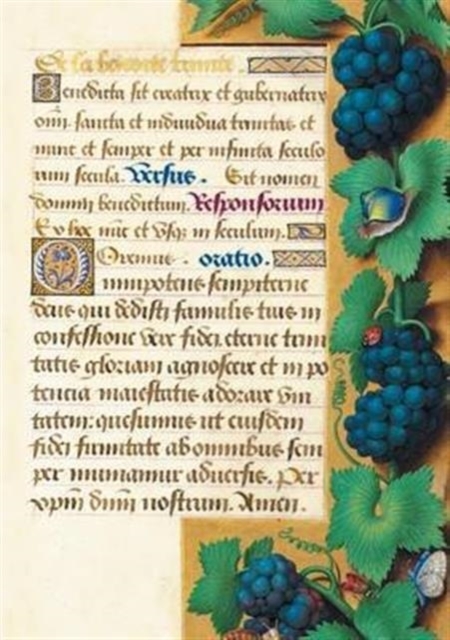 De la benoite trinite.
Benedicta sit creatrix et gubernatrix
om̄i sancta et indiuidua trinitas et
nunc et semper et per infinita seculo
rum secula. Versus. Sit nomen
domini benedictum. Responsorium
Ex hoc nūc et vsq; in seculum.
Oremus. oratio.
Omnipotens sempiterne
deus qui dedisti famulis tuis in
confessione vere fidei, eterne trini
tatis gloriam agnoscere et in po
tencia maiestatis adorare vni
tatem: quesumus ut eiusdem
fidei firmitate ab omnibus sem
per muniamur aduersis. Per
xpm̄ dn̄m nostrum. Amen.